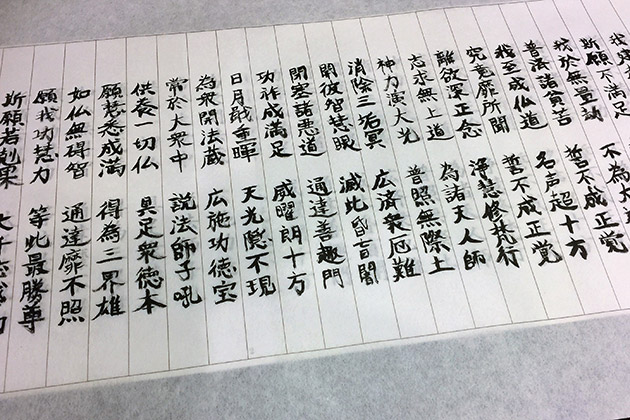 我建
斯願不満足
我於無量劫 不為大
普済諸貧苦 誓不成正覚
我至成仏道 名声超十方
究竟靡所聞 誓不成正覚
離欲深正念 浄慧修梵行
志求無上道 為諸天人師
神力演大光 普照無際土
消除三垢冥 広済衆厄難
開彼智慧眼 滅此昏盲闇
閉塞諸悪道 通達善趣門
功祚成満足 威曜朗十方
日月戢重暉 天光隠不現
為衆開法蔵 広施功徳宝
常於大衆中 説法師子吼
供養一切仏 具足衆徳本
願慧悉成満 得為三界雄
如仏無碍智 通達靡不照
願我功慧力 等此最勝尊
斯願若剋果 大千応感動